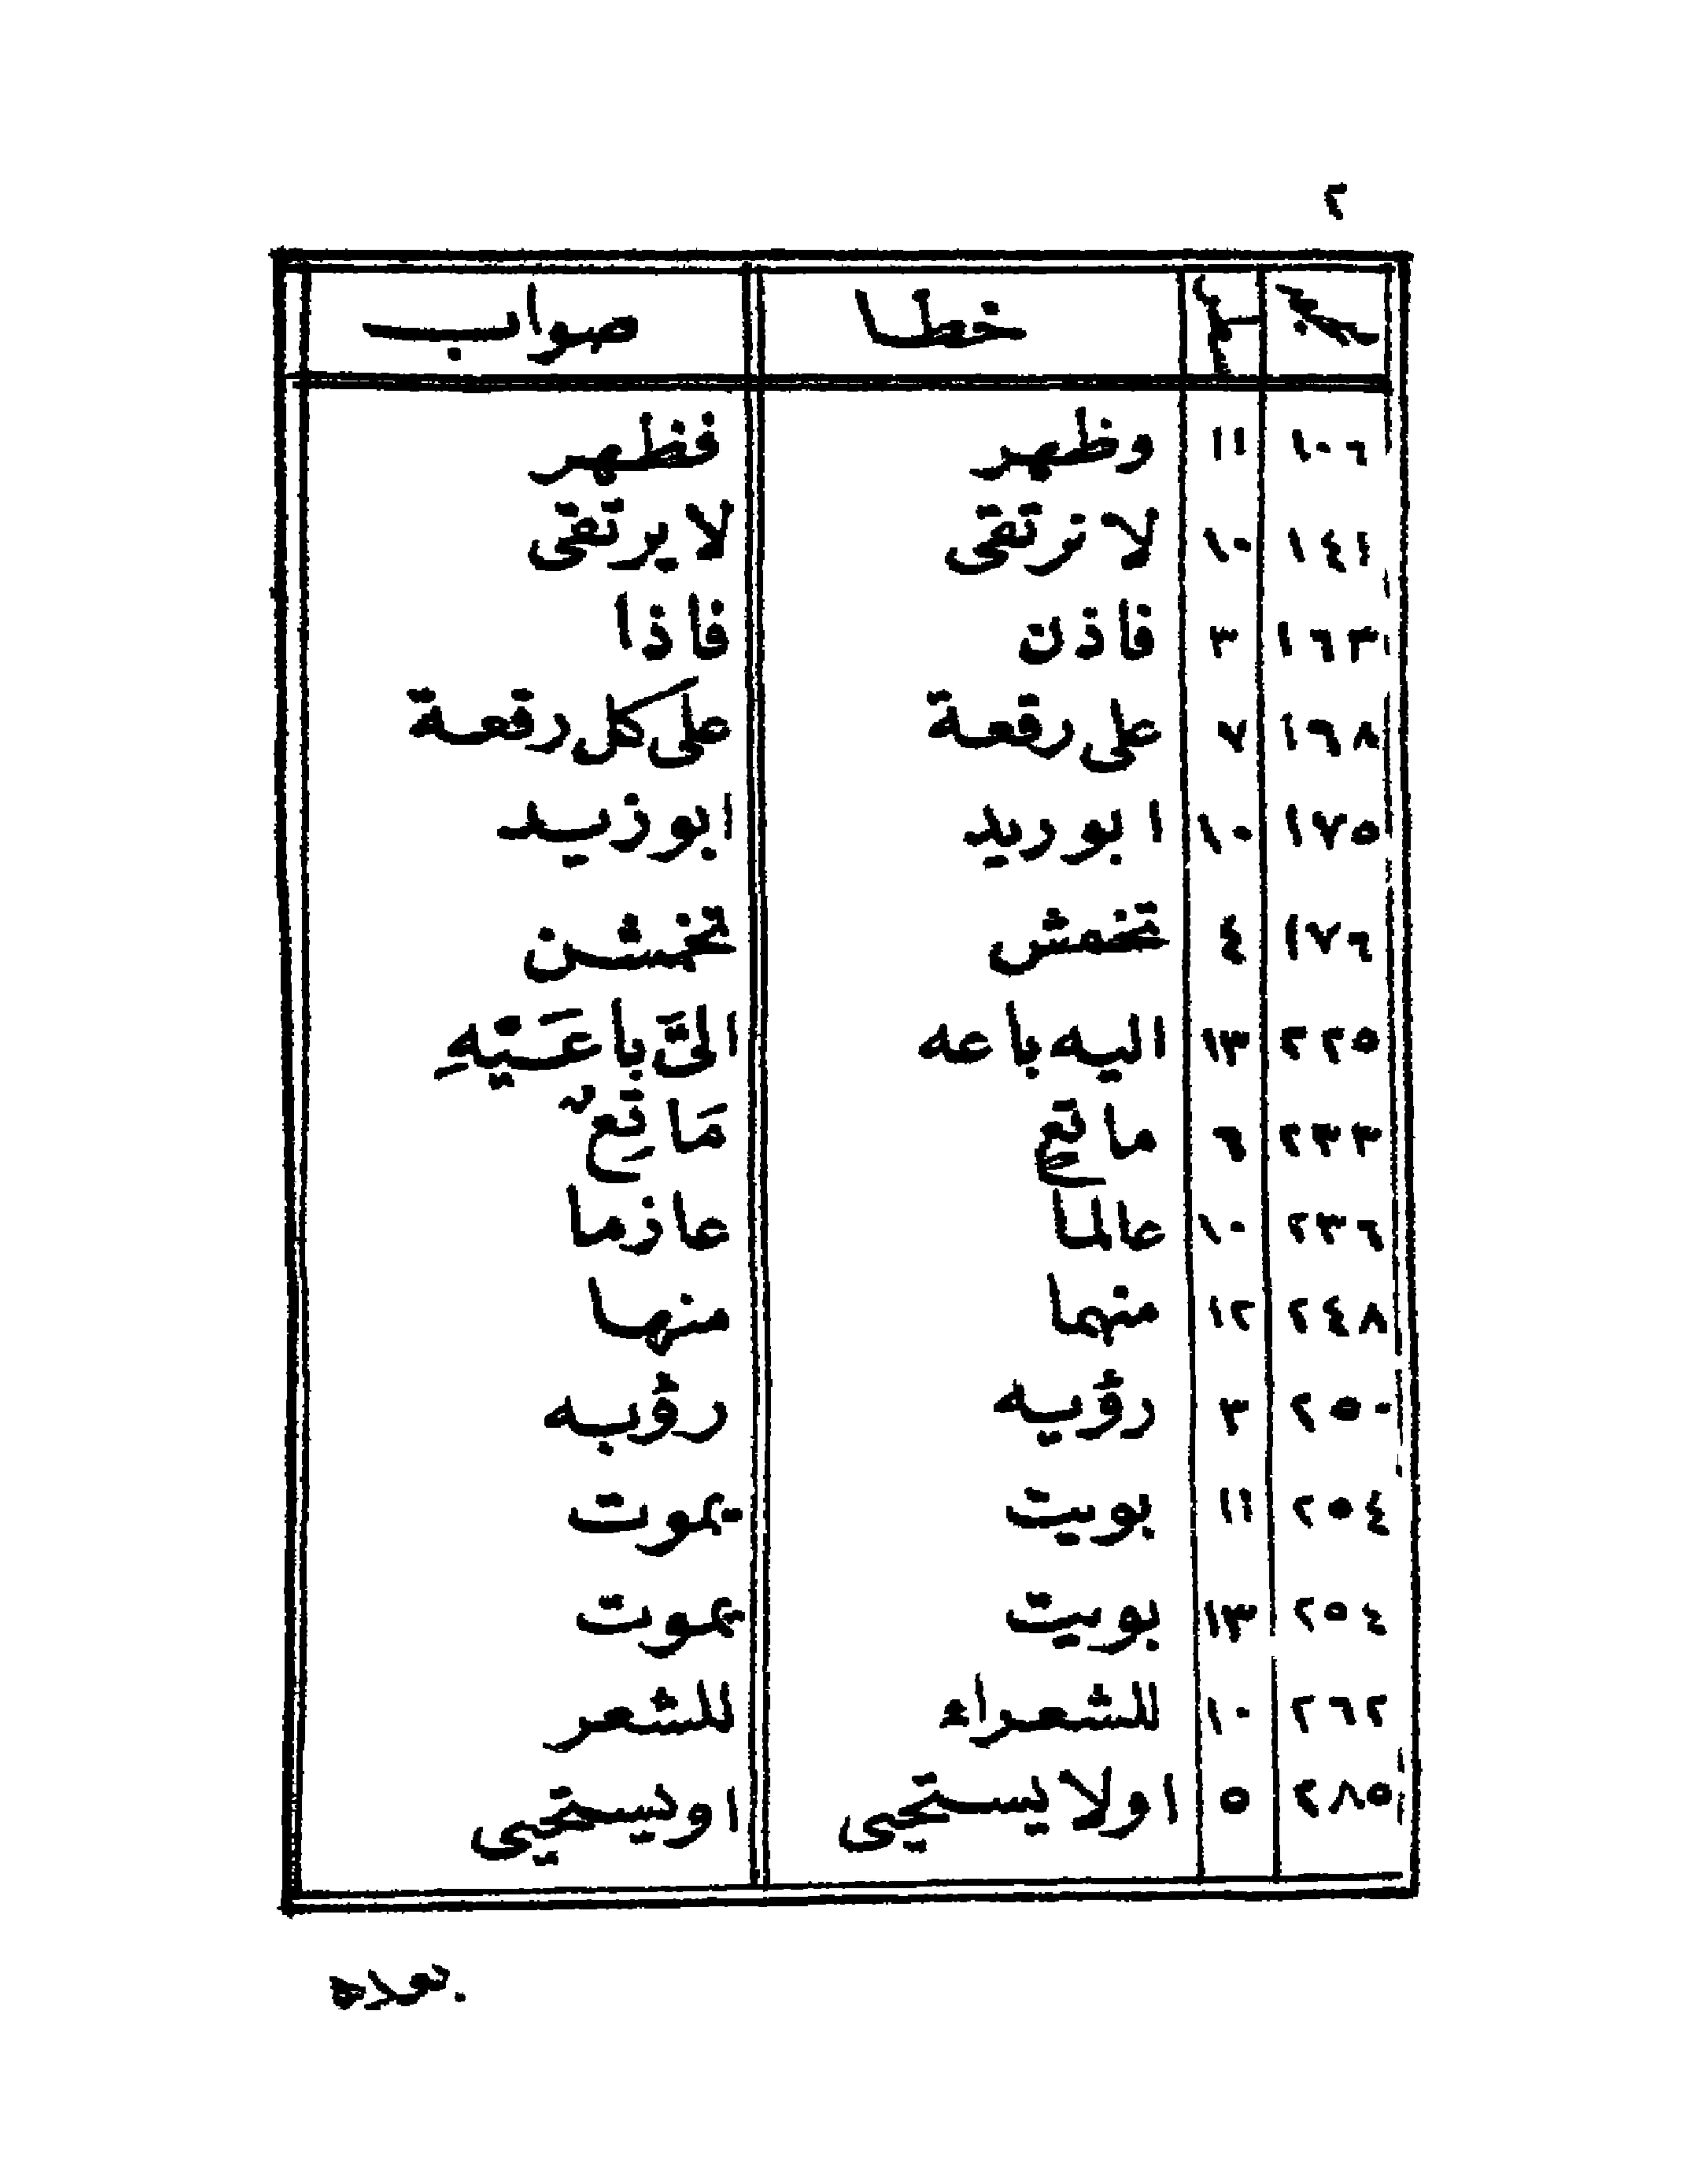 ٢
خطا صواب
١٠٦ ١١ وظهر فظهر
١٤١ ١٠ لا نرتقى لا يرتقى
١٦٣ ٣ فاذن فاذا
١٦٨ ٧ على رقعة على كل رقعة
١٧٥ ١٠ ابو ريد ابو زيد
١٧٦ ٤ تخمش تخمشن
٢٢٥ ١٣ اليه باعه
٢٣٣ ٦
٢٣٦ ١٠ عالما عازما
٢٤٨ ١٢ منهما منها
٢٥٠ ٣ رؤيه رؤبه
٢٥٤ ١١ بويت يموت
٢٥٤ ١٣ بويت يموت
٢٦٢ ١٠ للشعراء للشعر
٢٨٥ ٥ اولا يستحيى او يستحيى